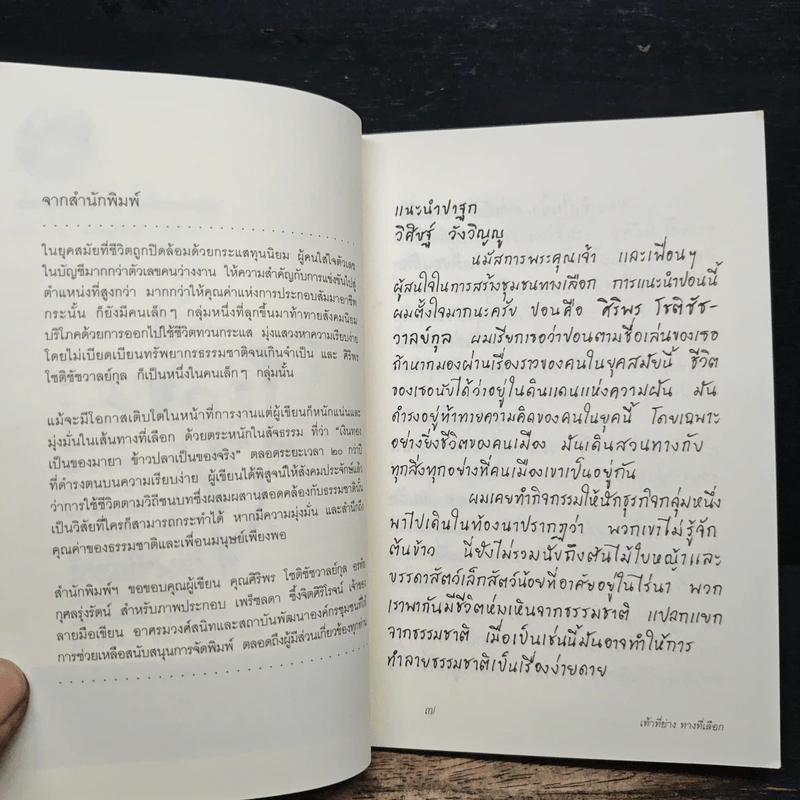 จากสำนักพิมพ์
ในยุคสมัยที่ชีวิตถูกปิดล้อมด้วยกระแสทุนนิยม ผู้คนใส่ใจตัวเลข
ในบัญชีมากกว่าตัวเลขคนว่างงาน ให้ความสำคัญกับการแข่งขันไปสู่
ตำแหน่งที่สูงกว่า มากกว่าให้คุณค่าแห่งการประกอบสัมมาอาชีพ
กระนั้น ก็ยังมีคนเล็กๆ กลุ่มหนึ่งที่ลุกขึ้นมาท้าทายสังคมนิยม
บริโภคด้วยการออกไปใช้ชีวิตทวนกระแส มุ่งแสวงหาความเรียบง่าย
โดยไม่เบียดเบียนทรัพยากรธรรมชาติจนเกินจำเป็น และ ศิริพร
โชติชัชวาลย์กุล ก็เป็นหนึ่งในคนเล็กๆ กลุ่มนั้น
แม้จะมีโอกาสเติบโตในหน้าที่การงานแต่ผู้เขียนก็หนักแน่นและ
มุ่งมั่นในเส้นทางที่เลือก ด้วยตระหนักในสัจธรรม ที่ว่า "เงินทอง
เป็นของมายา ข้าวปลาเป็นของจริง" ตลอดระยะเวลา ๒๐ กว่าปี
ที่ดำรงตนบนความเรียบง่าย ผู้เขียนได้พิสูจน์ให้สังคมประจักษ์แล้ว
ว่าการใช้ชีวิตตามวิถีชนบทซึ่งผสมผสานสอดคล้องกับธรรมชาตินั้น
เป็นวิสัยที่ใครก็สามารถกระทำได้ หากมีความมุ่งมั่น และสำนึกถึง
คุณค่าของธรรมชาติและเพื่อนมนุษย์เพียงพอ
สำนักพิมพ์ฯ ขอขอบคุณผู้เขียน คุณศิริพร โชติชัชวาลย์กุล
กุศลรุ่งรัตน์ สำหรับภาพประกอบ เพร็ชลดา ซึ้งจิตศิริโรจน์ เจ้าของ
ลายมือเขียน อาศรมวงศ์สนิทและสถาบันพัฒนาองค์กรชุมชนที่ให้
การช่วยเหลือสนับสนุนการจัดพิมพ์ ตลอดถึงผู้มีส่วนเกี่ยวข้องทุกท่าน
แนะนำปาฐก
วิศิษฐ์ วังวิญญู
นมัสการพระคุณเจ้า และเพื่อนๆ
ผู้สนใจในการสร้างชุมชนทางเลือก การแนะนำปอนนี้
ผมตั้งใจมากนะครับ ปอนคือ ศิริพร โชติชัช-
วาลย์กุล ผมเรียกเธอว่าปอนตามชื่อเล่นของเธอ
ถ้าหากมองผ่านเรื่องราวของคนในยุคสมัยนี้ ชีวิต
ของเธอนับได้ว่าอยู่ในดินแดนแห่งความฝัน มัน
ดำรงอยู่ท้าทายความคิดของคนในยุคนี้ โดยเฉพาะ
อย่างยิ่งชีวิตของคนเมือง มันเดินสวนทางกับ
ทุกสิ่งทุกอย่างที่คนเมืองเขาเป็นอยู่กัน
ผมเคยทำกิจกรรมให้นักธุรกิจกลุ่มหนึ่ง
พาไปเดินในท้องนาปรากฏว่า พวกเขาไม่รู้จัก
ต้นข้าว นี่ยังไม่รวมนับถึงต้นไม้ใบหญ้าและ
บรรดาสัตว์เล็กสัตว์น้อยที่อาศัยอยู่ในไร่นา พวก
เราพากันมีชีวิตห่างเหินจากธรรมชาติ แปลกแยก
จากธรรมชาติ เมื่อเป็นเช่นนี้มันอาจทำให้การ
ทำลายธรรมชาติเป็นเรื่องง่ายดาย
๓/
เท้าที่ย่าง ทางที่เลือก